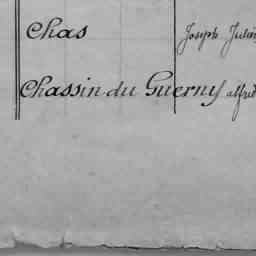 Chas Joseph Julien
Chassin du Guerny alfred